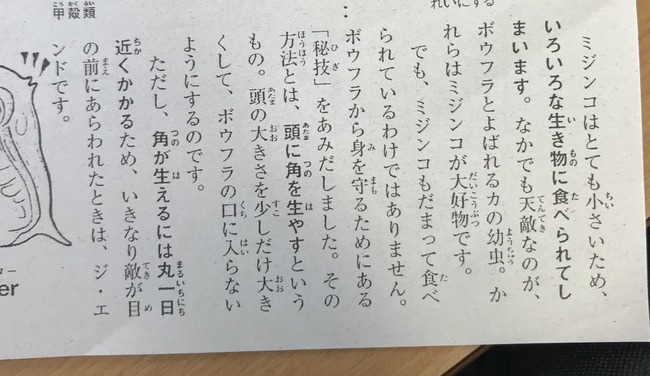 ミジンコはとても小さいため、
いろいろな生き物に食べられてし
まいます。なかでも天敵なのが、
ボウフラとよばれるカの幼虫。か
れらはミジンコが大好物です。
でも、ミジンコもだまって食べ
られているわけではありません。
ボウフラから身を守るためにある
「秘技」をあみだしました。その
方法とは、頭に角を生やすという
もの。頭の大きさを少しだけ大き
くして、ボウフラの口に入らない
ようにするのです。
ただし、角が生えるには丸一日
近くかかるため、いきなり敵が目
の前にあらわれたときは、ジ・エ
ンドです。
甲殻類
er